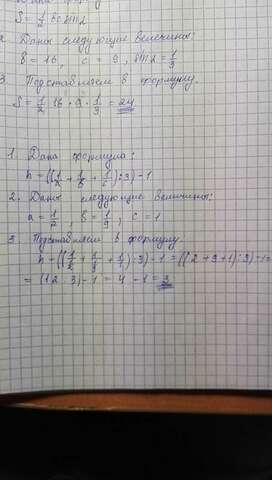 S = 1/2 bc sin α
2. Даны следующие величины:
b = 16, c = 9, sin α = 1/3
3. Подставляем в формулу.
S = 1/2 · 16 · 9 · 1/3 = 24
1. Дана формула:
h = ((1/a + 1/b + 1/c) : 3) - 1
2. Даны следующие величины:
a = 1/2 b = 1/9, c = 1
3. Подставляем в формулу
h = ((1/1/2 + 1/1/9 + 1/1) : 3) - 1 = ((2 + 9 + 1) : 3) - 1 =
= (12 : 3) - 1 = 4 - 1 = 3